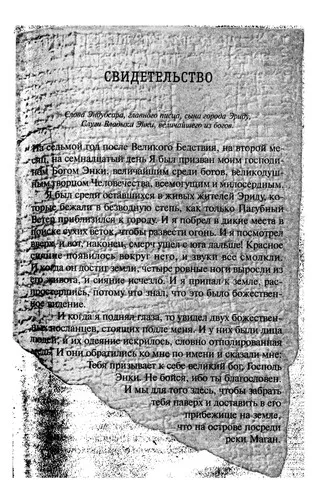 СВИДЕТЕЛЬСТВО
Слова Эндубсара, главного писца, сына города Эриду,
Слуги Владыки Энки, величайшего из богов.
На седьмой год после Великого Бедствия, на второй ме-
сяц, на семнадцатый день Я был призван моим господи-
ном Богом Энки, величайшим среди богов, великодуш-
ным творцом Человечества, всемогущим и милосердным.
Я был среди оставшихся в живых жителей Эриду,
которые бежали в безводную степь, как только Пагубный
Ветер приблизился к городу. И я побрел в дикие места в
поиске сухих веток, чтобы развести огонь. И я посмотрел
вверх, и вот, наконец, смерч ушел с юга дальше! Красное
сияние появилось вокруг него, и звуки все смолкли.
И когда он достиг земли, четыре ровные ноги выросли из
его живота, и сияние исчезло. И я припал к земле, рас-
простершись, потому что знал, что это было божествен-
ное видение.
И когда я поднял глаза, то увидел двух божествен-
ных посланцев, стоящих подле меня. И у них были лица
людей, и их одеяние искрилось, словно отполированная
медь. И они обратились ко мне по имени и сказали мне:
Тебя призывает к себе великий бог, Господь
Энки. Не бойся, ибо ты благословен.
И мы для того здесь, чтобы забрать
тебя наверх и доставить в его
прибежище на земле,
что на острове посреди
реки Маган.